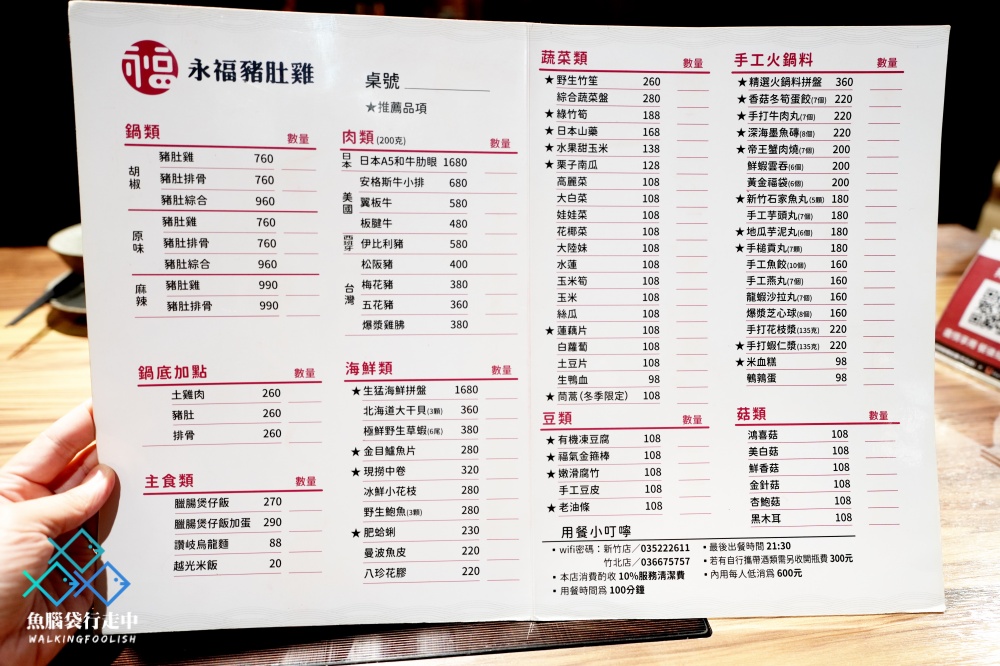 福 永福豬肚雞
桌號
★推薦品項
鍋類 數量
胡椒
豬肚雞 760
豬肚排骨 760
豬肚綜合 960
原味
豬肚雞 760
豬肚排骨 760
豬肚綜合 960
麻辣
豬肚雞 990
豬肚排骨 990
鍋底加點 數量
土雞肉 260
豬肚 260
排骨 260
主食類 數量
臘腸煲仔飯 270
臘腸煲仔飯加蛋 290
讚岐烏龍麵 88
越光米飯 20
肉類(200克) 數量
日本
日本A5和牛肋眼 1680
美國
安格斯牛小排 680
翼板牛 580
板腱牛 480
西班牙
伊比利豬 580
台灣
松阪豬 400
梅花豬 380
五花豬 360
爆漿雞胇 380
海鮮類 數量
★生猛海鮮拼盤 1680
北海道大干貝(3顆) 360
極鮮野生草蝦(6尾) 380
★金目鱸魚片 280
★現撈中卷 320
冰鮮小花枝 280
野生鮑魚(3顆) 280
★肥蛤蜊 230
曼波魚皮 220
八珍花膠 220
蔬菜類 數量
★野生竹笙 260
綜合蔬菜盤 280
★綠竹筍 188
★日本山藥 168
★水果甜玉米 138
★栗子南瓜 128
高麗菜 108
大白菜 108
娃娃菜 108
花椰菜 108
大陸妹 108
水蓮 108
玉米筍 108
玉米 108
絲瓜 108
★蓮藕片 108
白蘿蔔 108
土豆片 108
生鴨血 98
★茼蒿(冬季限定) 108
豆類 數量
★有機凍豆腐 108
★福氣金箍棒 108
★嫩滑腐竹 108
手工豆皮 108
★老油條 108
手工火鍋料 數量
★精選火鍋料拼盤 360
★香菇冬筍蛋餃(7個) 220
★手打牛肉丸(7個) 220
★深海墨魚磚(8個) 220
★帝王蟹肉燒(7個) 200
鮮蝦雲吞(6個) 200
黃金福袋(6個) 200
★新竹石家魚丸(5顆) 180
手工芋頭丸(7個) 180
★地瓜芋泥丸(6個) 180
★手槌貢丸(7顆) 180
手工魚餃(10個) 160
手工燕丸(7個) 160
龍蝦沙拉丸(7個) 160
爆漿芝心球(8個) 160
手打花枝漿(135克) 220
★手打蝦仁漿(135克) 220
★米血糕 98
鵪鶉蛋 98
菇類 數量
鴻喜菇 108
美白菇 108
鮮香菇 108
金針菇 108
杏鮑菇 108
黑木耳 108
用餐小叮嚀
• wifi密碼：新竹店／035222611
竹北店／036675757
• 本店消費酌收 10%服務清潔費
• 用餐時間為 100分鐘
• 最後出餐時間 21:30
• 若有自行攜帶酒類需另收開瓶費 300元
• 內用每人低消為 600元
魚腦袋行走中
WALKINGFOOLISH